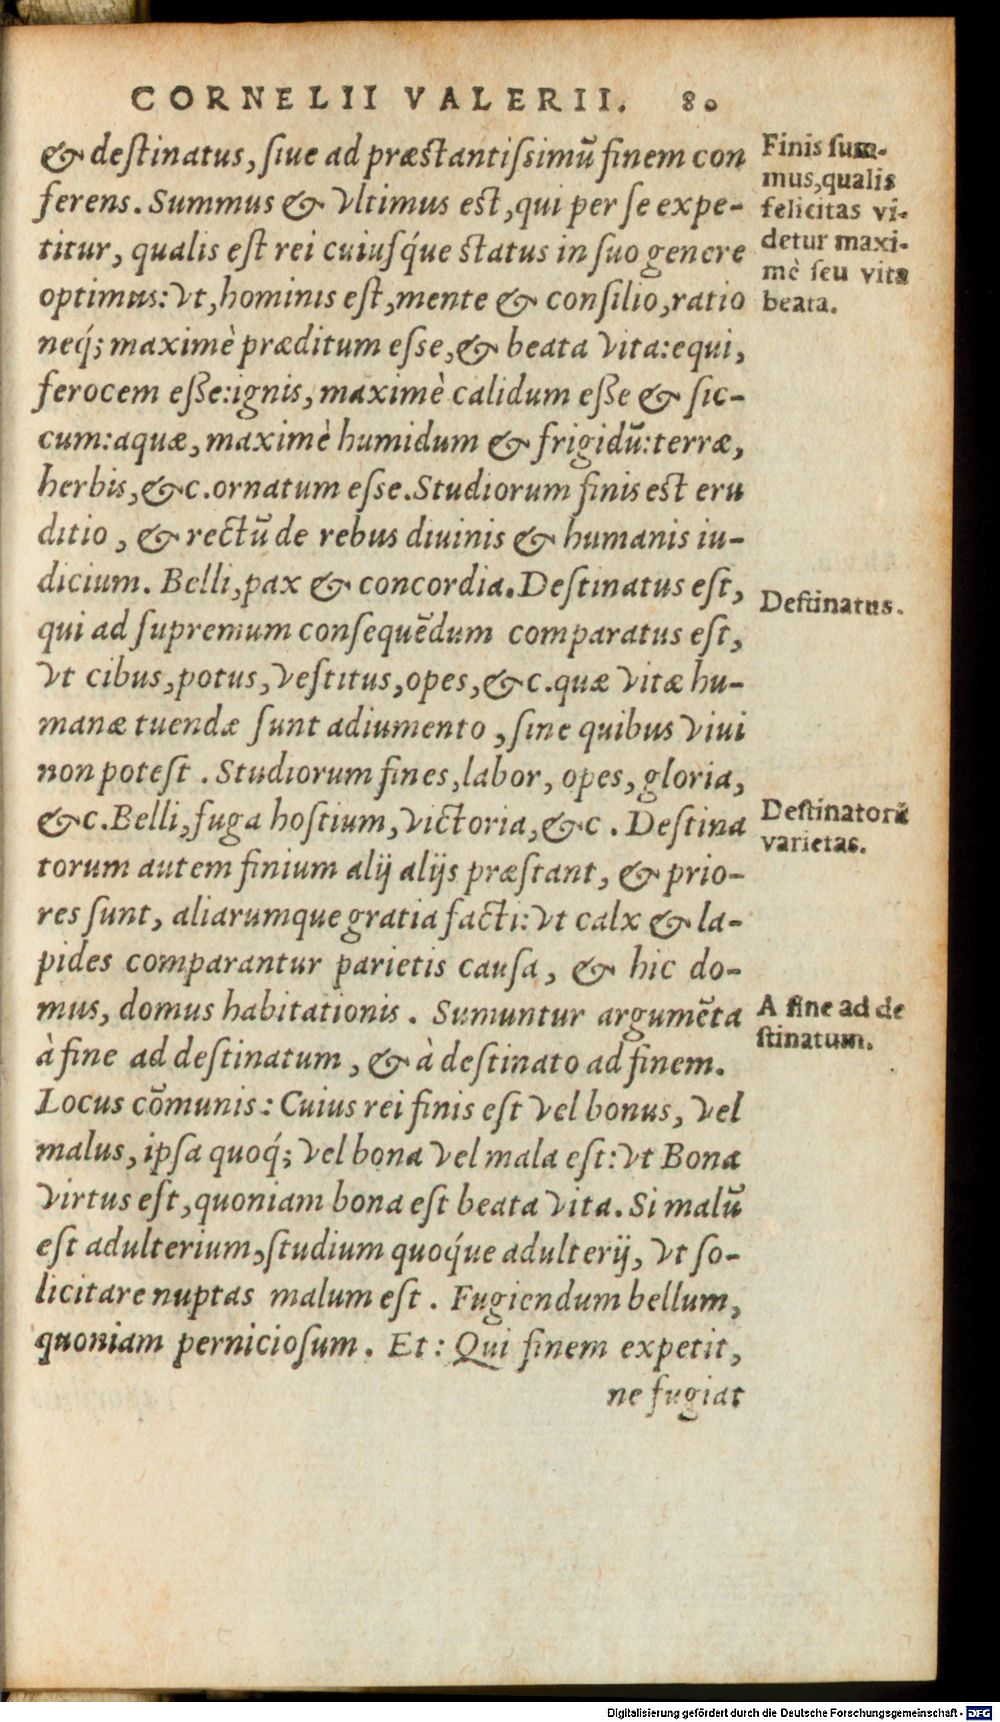 CORNELII VALERII. 80
& destinatus, siue ad præstantissimū finem con
ferens. Summus & vltimus est, qui per se expe-
titur, qualis est rei cuiusq́ue status in suo genere
optimus: vt, hominis est, mente & consilio, ratio
neq́; maximè præditum esse, & beata vita: equi,
ferocem esse: ignis, maximè calidum esse & sic-
cum: aquæ, maximè humidum & frigidū: terræ,
herbis, &c. ornatum esse. Studiorum finis est eru
ditio, & rectū de rebus diuinis & humanis iu-
dicium. Belli, pax & concordia. Destinatus est,
qui ad supremum consequēdum comparatus est,
vt cibus, potus, vestitus, opes, &c. quæ vitæ hu-
manæ tuendæ sunt adiumento, sine quibus viui
non potest. Studiorum fines, labor, opes, gloria,
&c. Belli, fuga hostium, victoria, &c. Destina
torum autem finium alij alijs præstant, & prio-
res sunt, aliarumque gratia facti: vt calx & la-
pides comparantur parietis causa, & hic do-
mus, domus habitationis. Sumuntur argumēta
à fine ad destinatum, & à destinato ad finem.
Locus cōmunis: Cuius rei finis est vel bonus, vel
malus, ipsa quoq́; vel bona vel mala est: vt Bona
virtus est, quoniam bona est beata vita. Si malū
est adulterium, studium quoq́ue adulterij, vt so-
licitare nuptas malum est. Fugiendum bellum,
quoniam perniciosum. Et: Qui finem expetit,
ne fugiat
Finis sum-
mus, qualis
felicitas vi-
detur maxi-
mè seu vita
beata.
Destinatus.
Destinatorū
varietas.
A fine ad de
stinatum.
Digitalisierung gefördert durch die Deutsche Forschungsgemeinschaft - DFG